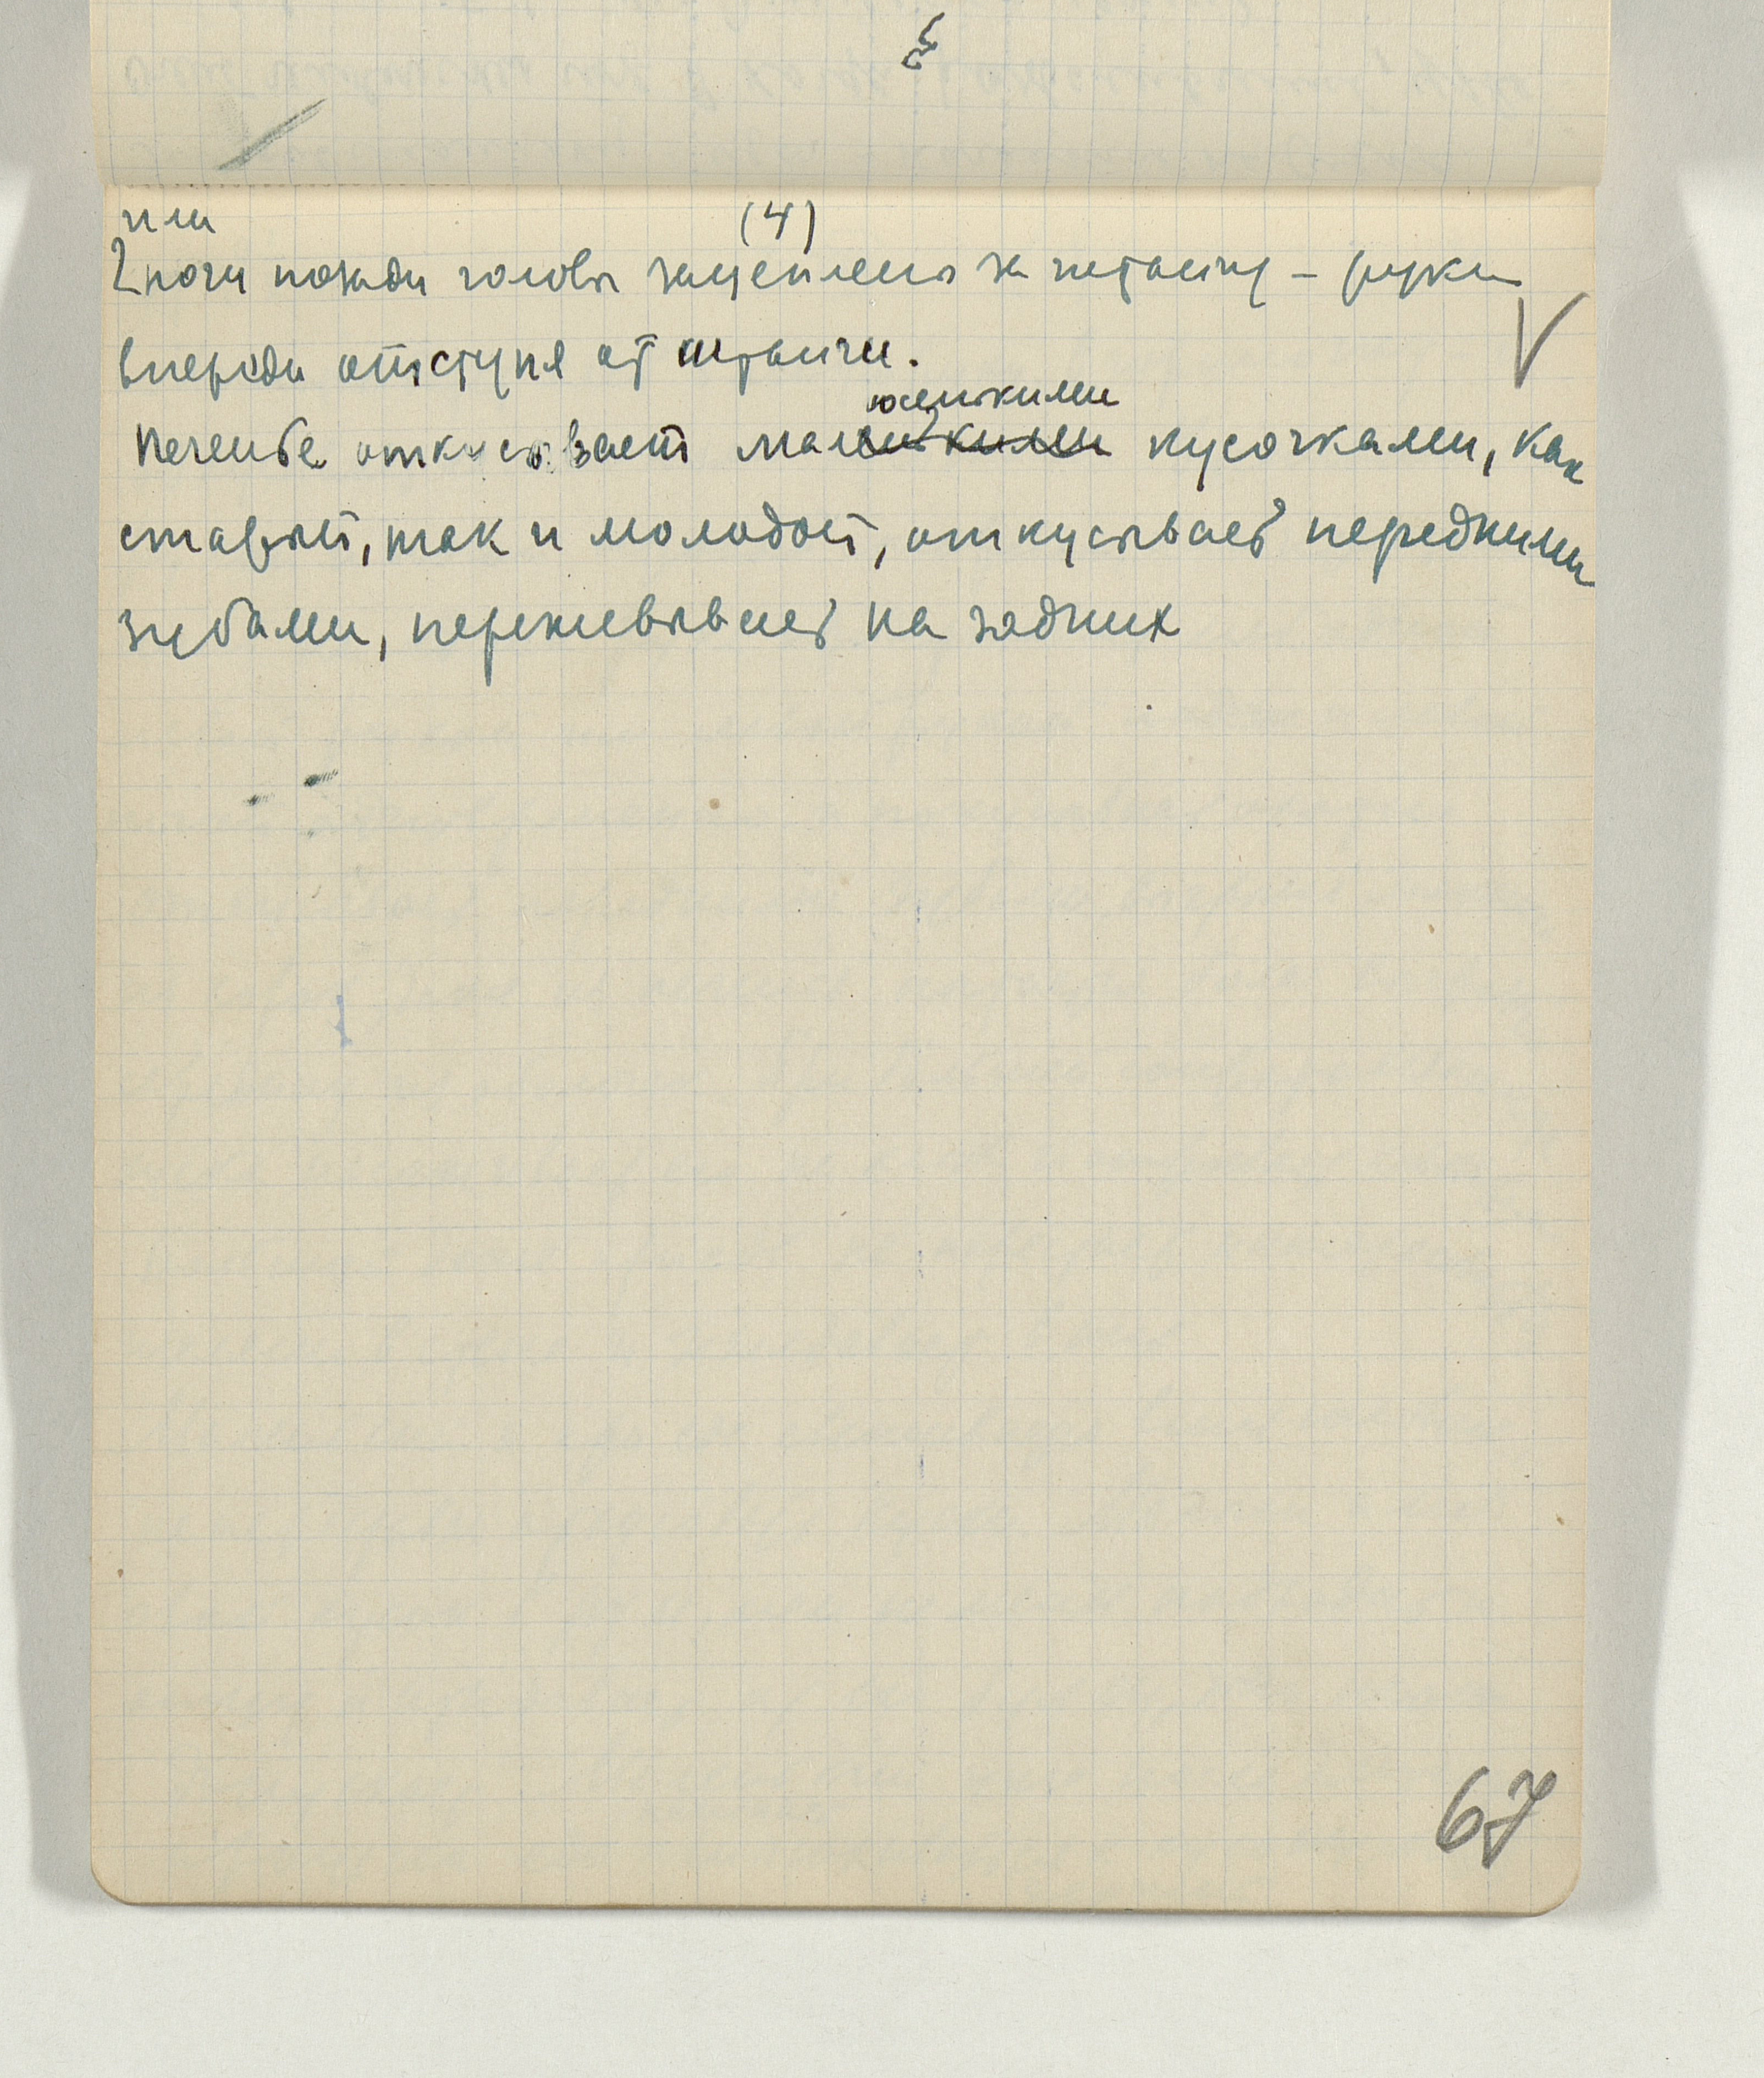 или
(4)
2 ноги позади головы зацеплены за штангу - руки
впереди отступя от штанги.
V
Печенье откусывает маленькими кусочками, как
старый, так и молодой, откусывает передними
зубами, пережевывает на задних
67